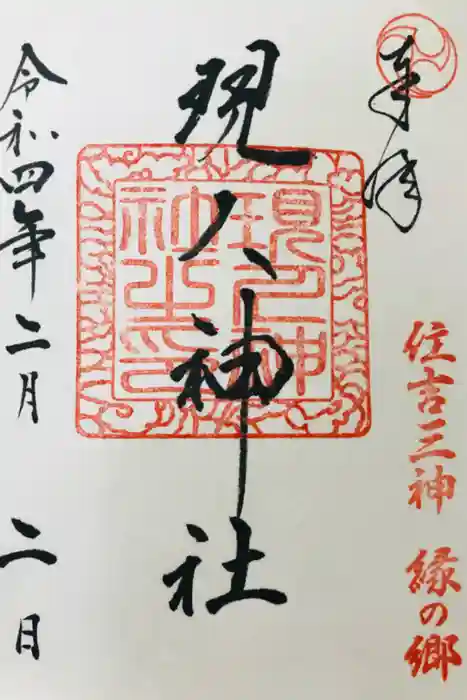 奉拝
住吉三神 縁の郷
現人神社
現人神社之印
令和四年 二月 二日